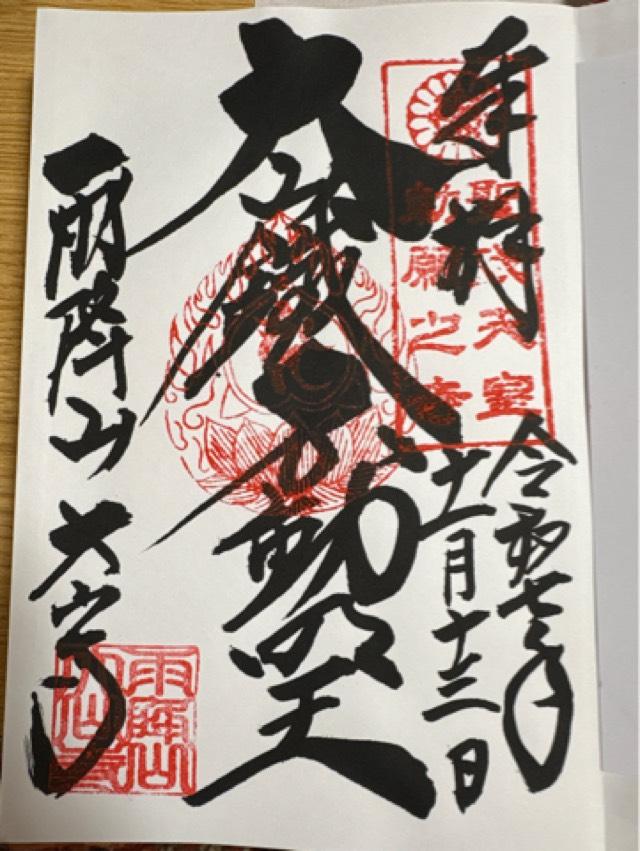 奉拝
聖武天皇
勅願之寺
令和七年
十一月十三日
大山鐵不動明王
雨降山大山寺
雨降山
大山寺